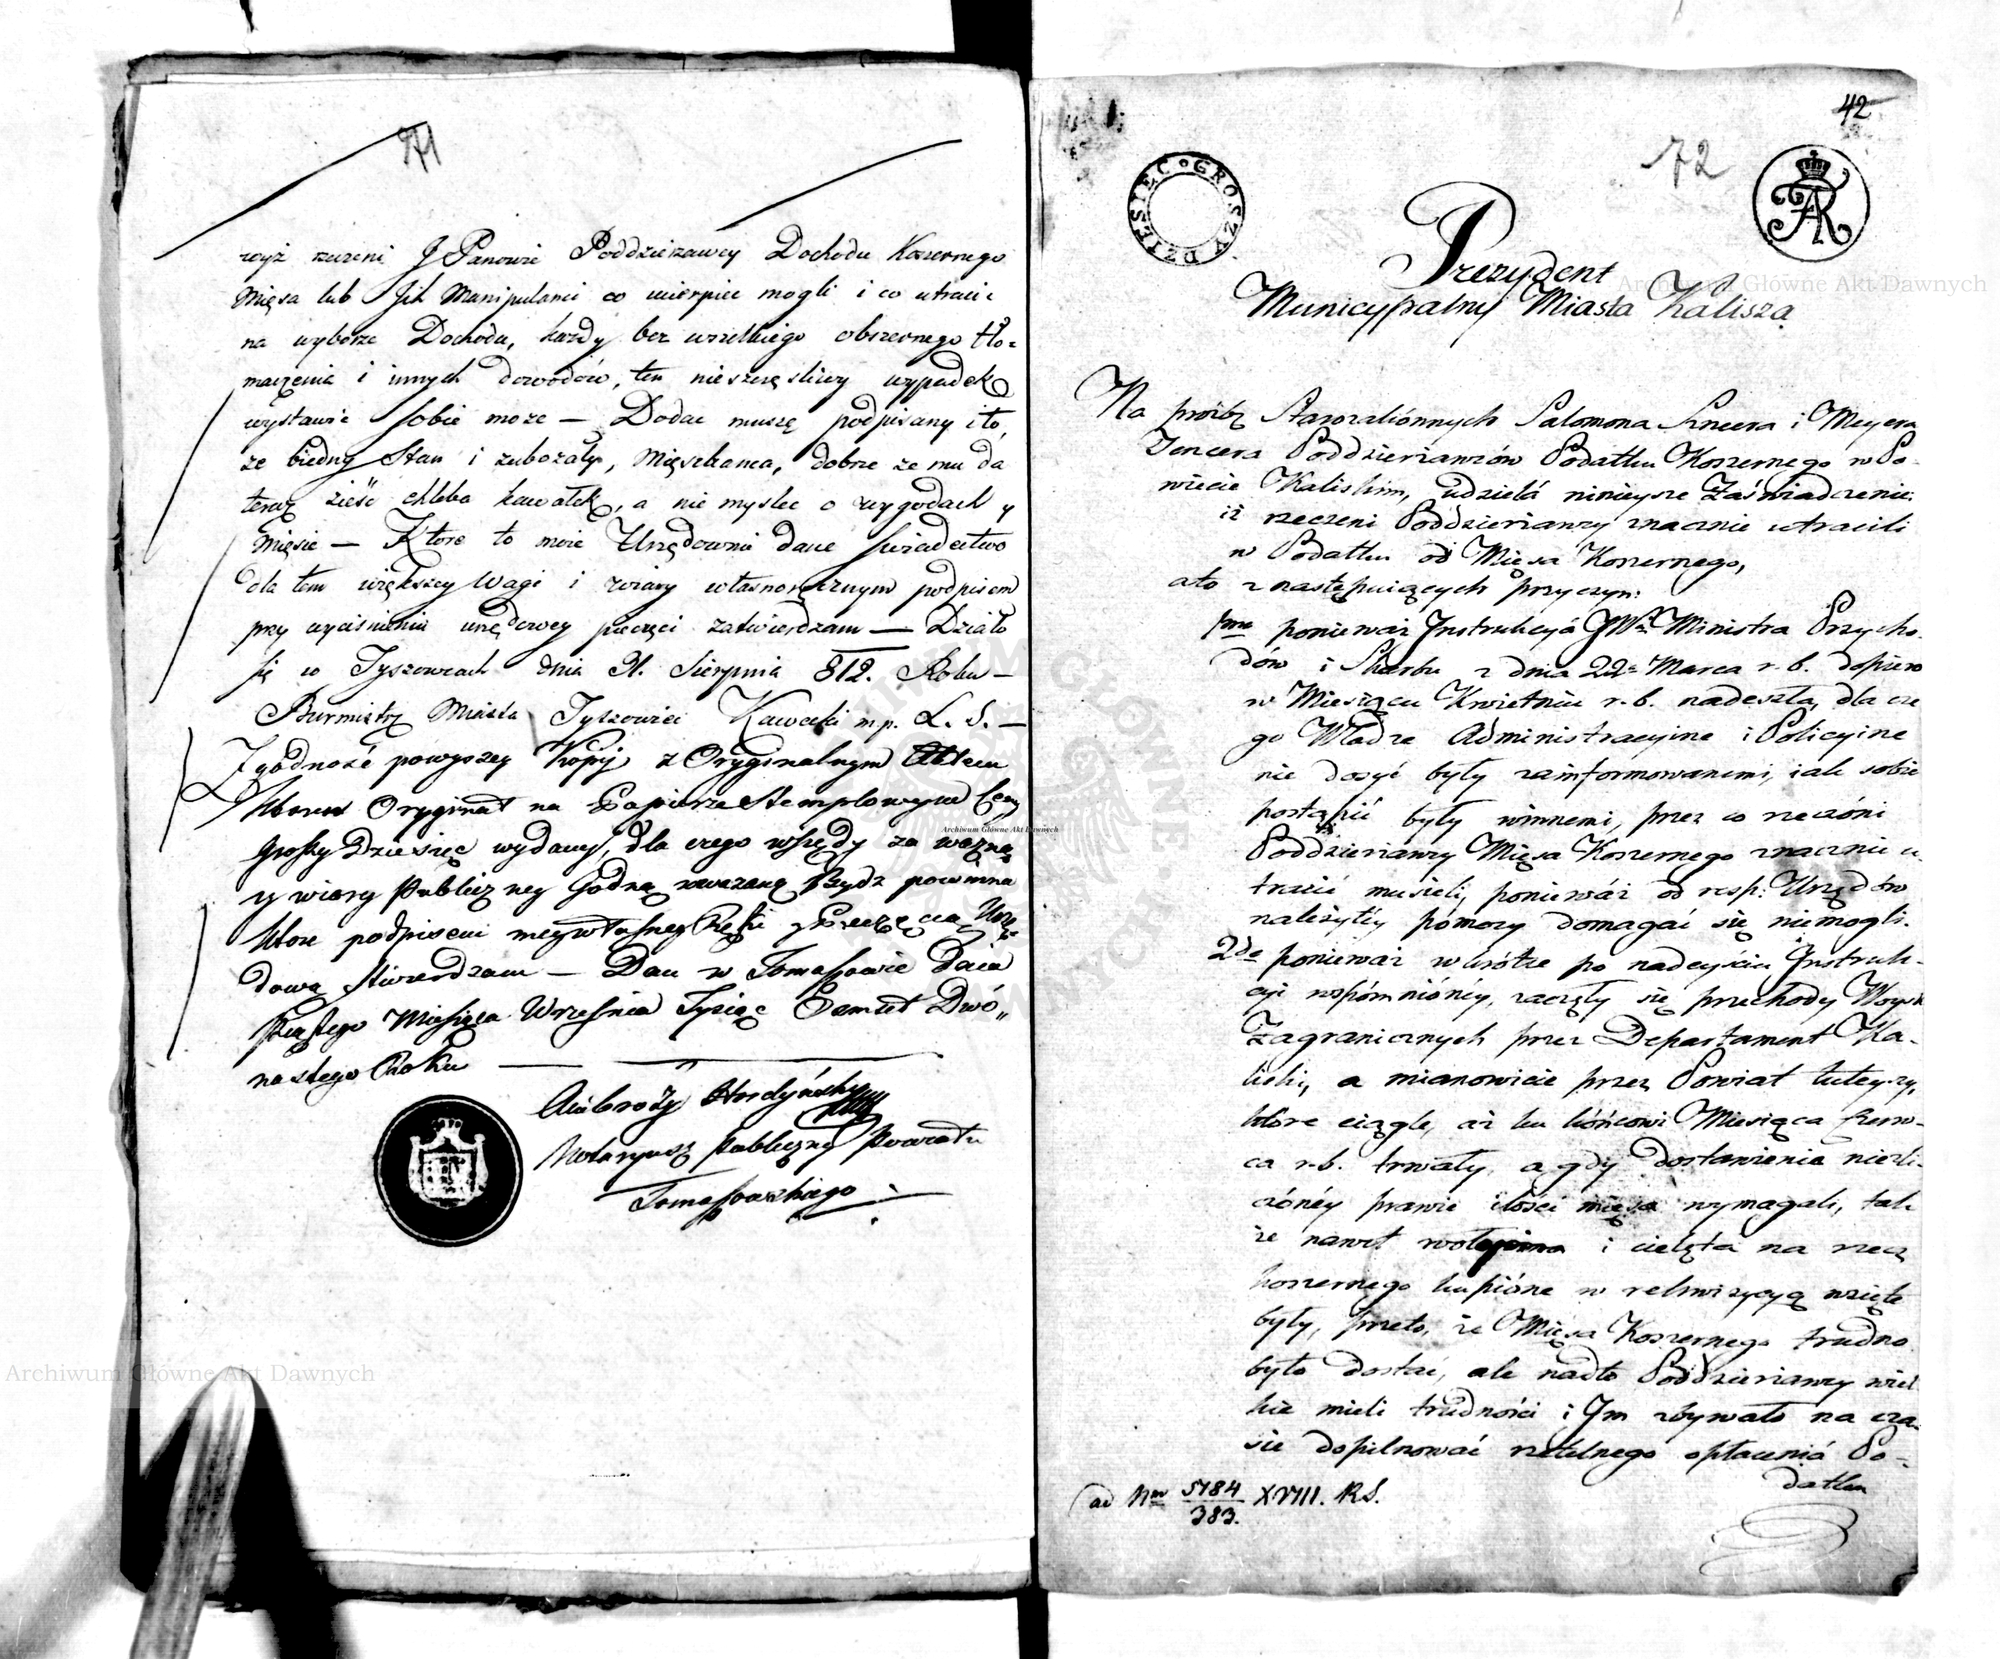 71
wyż rzeczeni J Panowie Poddzierzawcy Dochodu Koszernego
Mięsa lub Jih Manipulanci co cierpiec mogli i co utracic
na wyborze Dochodu, każdy bez wszelkiego obszernego tło=
maczenia i innych dowodów, ten nieszczęsliwy wypadek
wystawic sobie moze — Dodac muszę podpisany i to,
ze biedny Stan i zubozały, Mięszkanca, dobrze ze mu da
teraz zieść chleba kawałek, a nie myslec o wygodach y
Mięsie — Ktore to moie Urzędownie dane swiadectwo
dla tem większey Wagi i wiary własnoręcznym podpisem
przy wyciśnieniu urzędowey pieczęci zatwierdzam — Działo
się w Tyszowcach dnia 31. Sierpnia 812. Roku —
Burmistrz Miasta Tyszowiec Kawecki m.p. L. S. —
Zgodność powyszey Kopij z Oryginalnym Aktem
ktorego Oryginał na Papierze Stemplowym Ceny
Groszy Dziesięc wydany, dla czego wszędy za ważną
y wiary Publiczney Godną uważaną Bydz powinna
ktore podpisem mey własney Ręki y Pieczęcią Urzę=
dową stwierdzam — Dan w Tomaszowie Dnia
Piątego Miesiąca Wrzesnia Tysiąc Osmset Dwó„
nastego Roku
Ambroży Hordyński
Notaryusz Publiczny Powiatu
Tomaszowskiego
42
72
DZIESIĘC GROSZY
Prezydent
Municypalny Miasta Kalisza
Na prózbę Starozakónnych Salomona Sznera i Meyera
Joncera Poddzierżawców Podatku Koszernego w Po-
wiecie Kaliskim, udziela ninieysze Zaświadczenie
iż rzeczeni Poddzierżawcy znacznie utracili
w Podatku od Mięsa Koszernego,
a to z następuiących przyczyn:
1mo ponieważ Instrukcyá JWgo Ministra Przycho-
dów i Skarbu z dnia 22o Marca r. b. dopiero
w Miesiącu Kwietniu r. b. nadeszła, dla cze
go Władze Administracyine i Policyine
nie dosyć były zainformowanemi, iak sobie
postąpić były winnemi, przez co rzeczóni
Poddzierżawcy Mięsa Koszernego znacznie u-
tracić musieli, ponieważ od resp: Urzędów
należytéy pómocy domagać się niemogli.
2do ponieważ wkrótce po nadeyściu Instruk-
cyi wspómnionéy, zaczęły się przechody Woysk
Zagranicznych przez Departament Ka-
liski, a mianowicie przez Powiat tuteyszy,
które ciągle, aż ku kóńcowi Miesiąca Czerw-
ca r. b. trwały, a gdy dostawienia niezli-
czónéy prawie ilości mięsa wymagali, tak
że nawet woły i cielęta na rzecz
koszernego kupióne w rekwizycyą wzięte
były, przeto, że Mięsa Koszernego trudno
było dostać, ale nadto Poddzierżawcy wiel
kie mieli trudności i Im zbywało na cza-
sie dopilnować rzetelnego opłacenia Po-
datku
ad Num 5184/383. XVIII. R.S.
Archiwum Główne Akt Dawnych
Archiwum Główne Akt Dawnych
Archiwum Główne Akt Dawnych